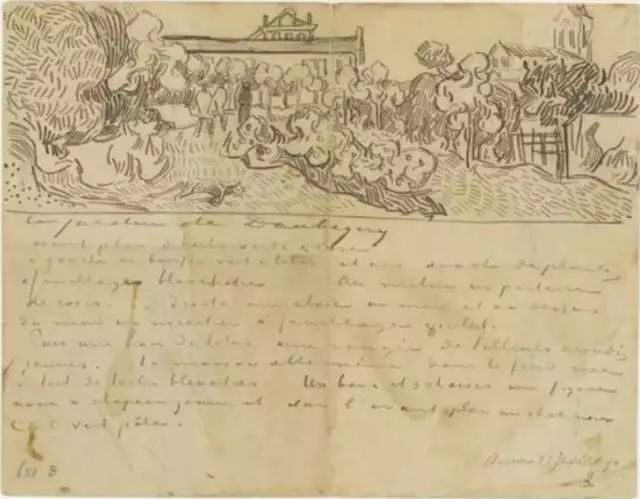 Le jardin de Daubigny
avant plan d'herbe verte & rose
à gauche un buisson vert & lilas et une souche de plantes
à feuillages blanchatres Au milieu un parterre
de roses. à droite une claie un mur et au dessus
du mur un noisetier à feuillages violet.
Puis une haie de lilas une rangée de tilleuls arrondis
jaunes. La maison elle même dans le fond rose
à toit de tuiles bleuatres Un banc et 3 chaises une figure
noire à chapeau jaune et sur l'avant plan un chat noir
Ciel vert pâle.